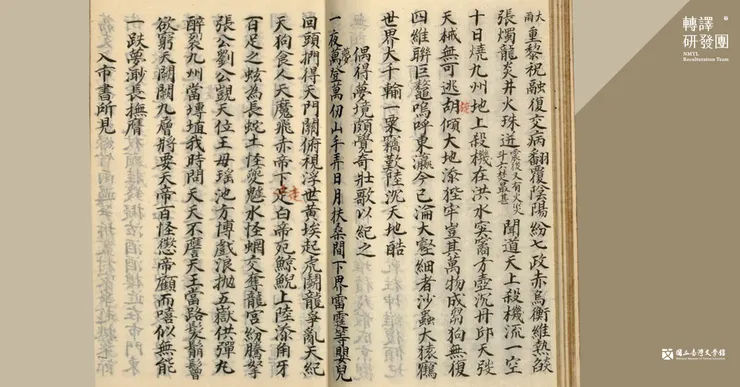 轉譯研發團
NMTL Reculteration Team
重黎祝融復交病翻覆陰陽紛七政赤烏衡維熱燄
張燭龍炎井火珠迸震後又有火災斗六最甚聞道天上殺機流一空
十日燒九州地上殺機在洪水方壺沉丹邱天弢
天械無可逃胡傾大地添狴牢豈其萬物成芻狗無復
四維聯巨鼇嗚呼東瀛今已淪大壑細者沙蟲大猿鶴
世界大千輸一粟竊歎陸沉天地酷
偶得夢境頗覺奇壯歌以紀之
一夜夢登萬仞山手弄日月扶桑間下界雷霆等嬰兒
回頭捫得天門關俯視浮世黃埃起虎鬬龍爭亂天紀
天狗食人天魔飛赤帝下走白帝死鯨鯢上陸添角牙
百足之蚿為長蛇土怪夔魖水怪蜩交奪龍宮紛騰拏
張公劉公覬天位王母瑤池方博戲浪拋五嶽供彈丸
醉裂九州當塼埴我時問天天不譍天王當路髮鬅鬙
欲窮天闕關九層將要天帝百怪懲帝顧而嘻似無能
一跌夢渺長撫膺
入市書所見
國立台灣文學館